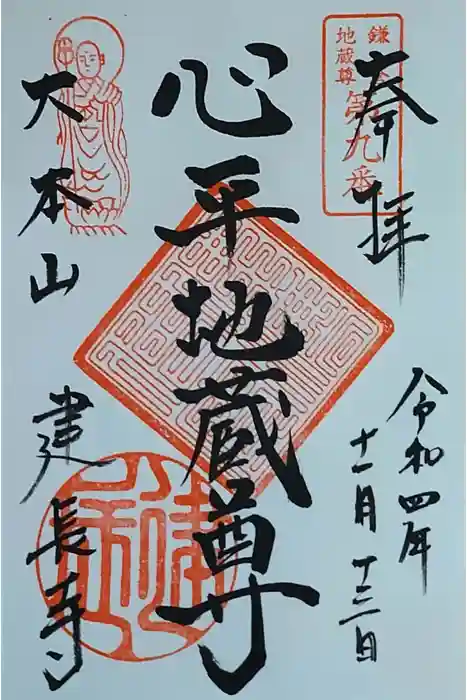 奉拝
鎌
地蔵尊
第九番
心平地蔵尊
大本山
建長寺
令和四年
十一月十三日